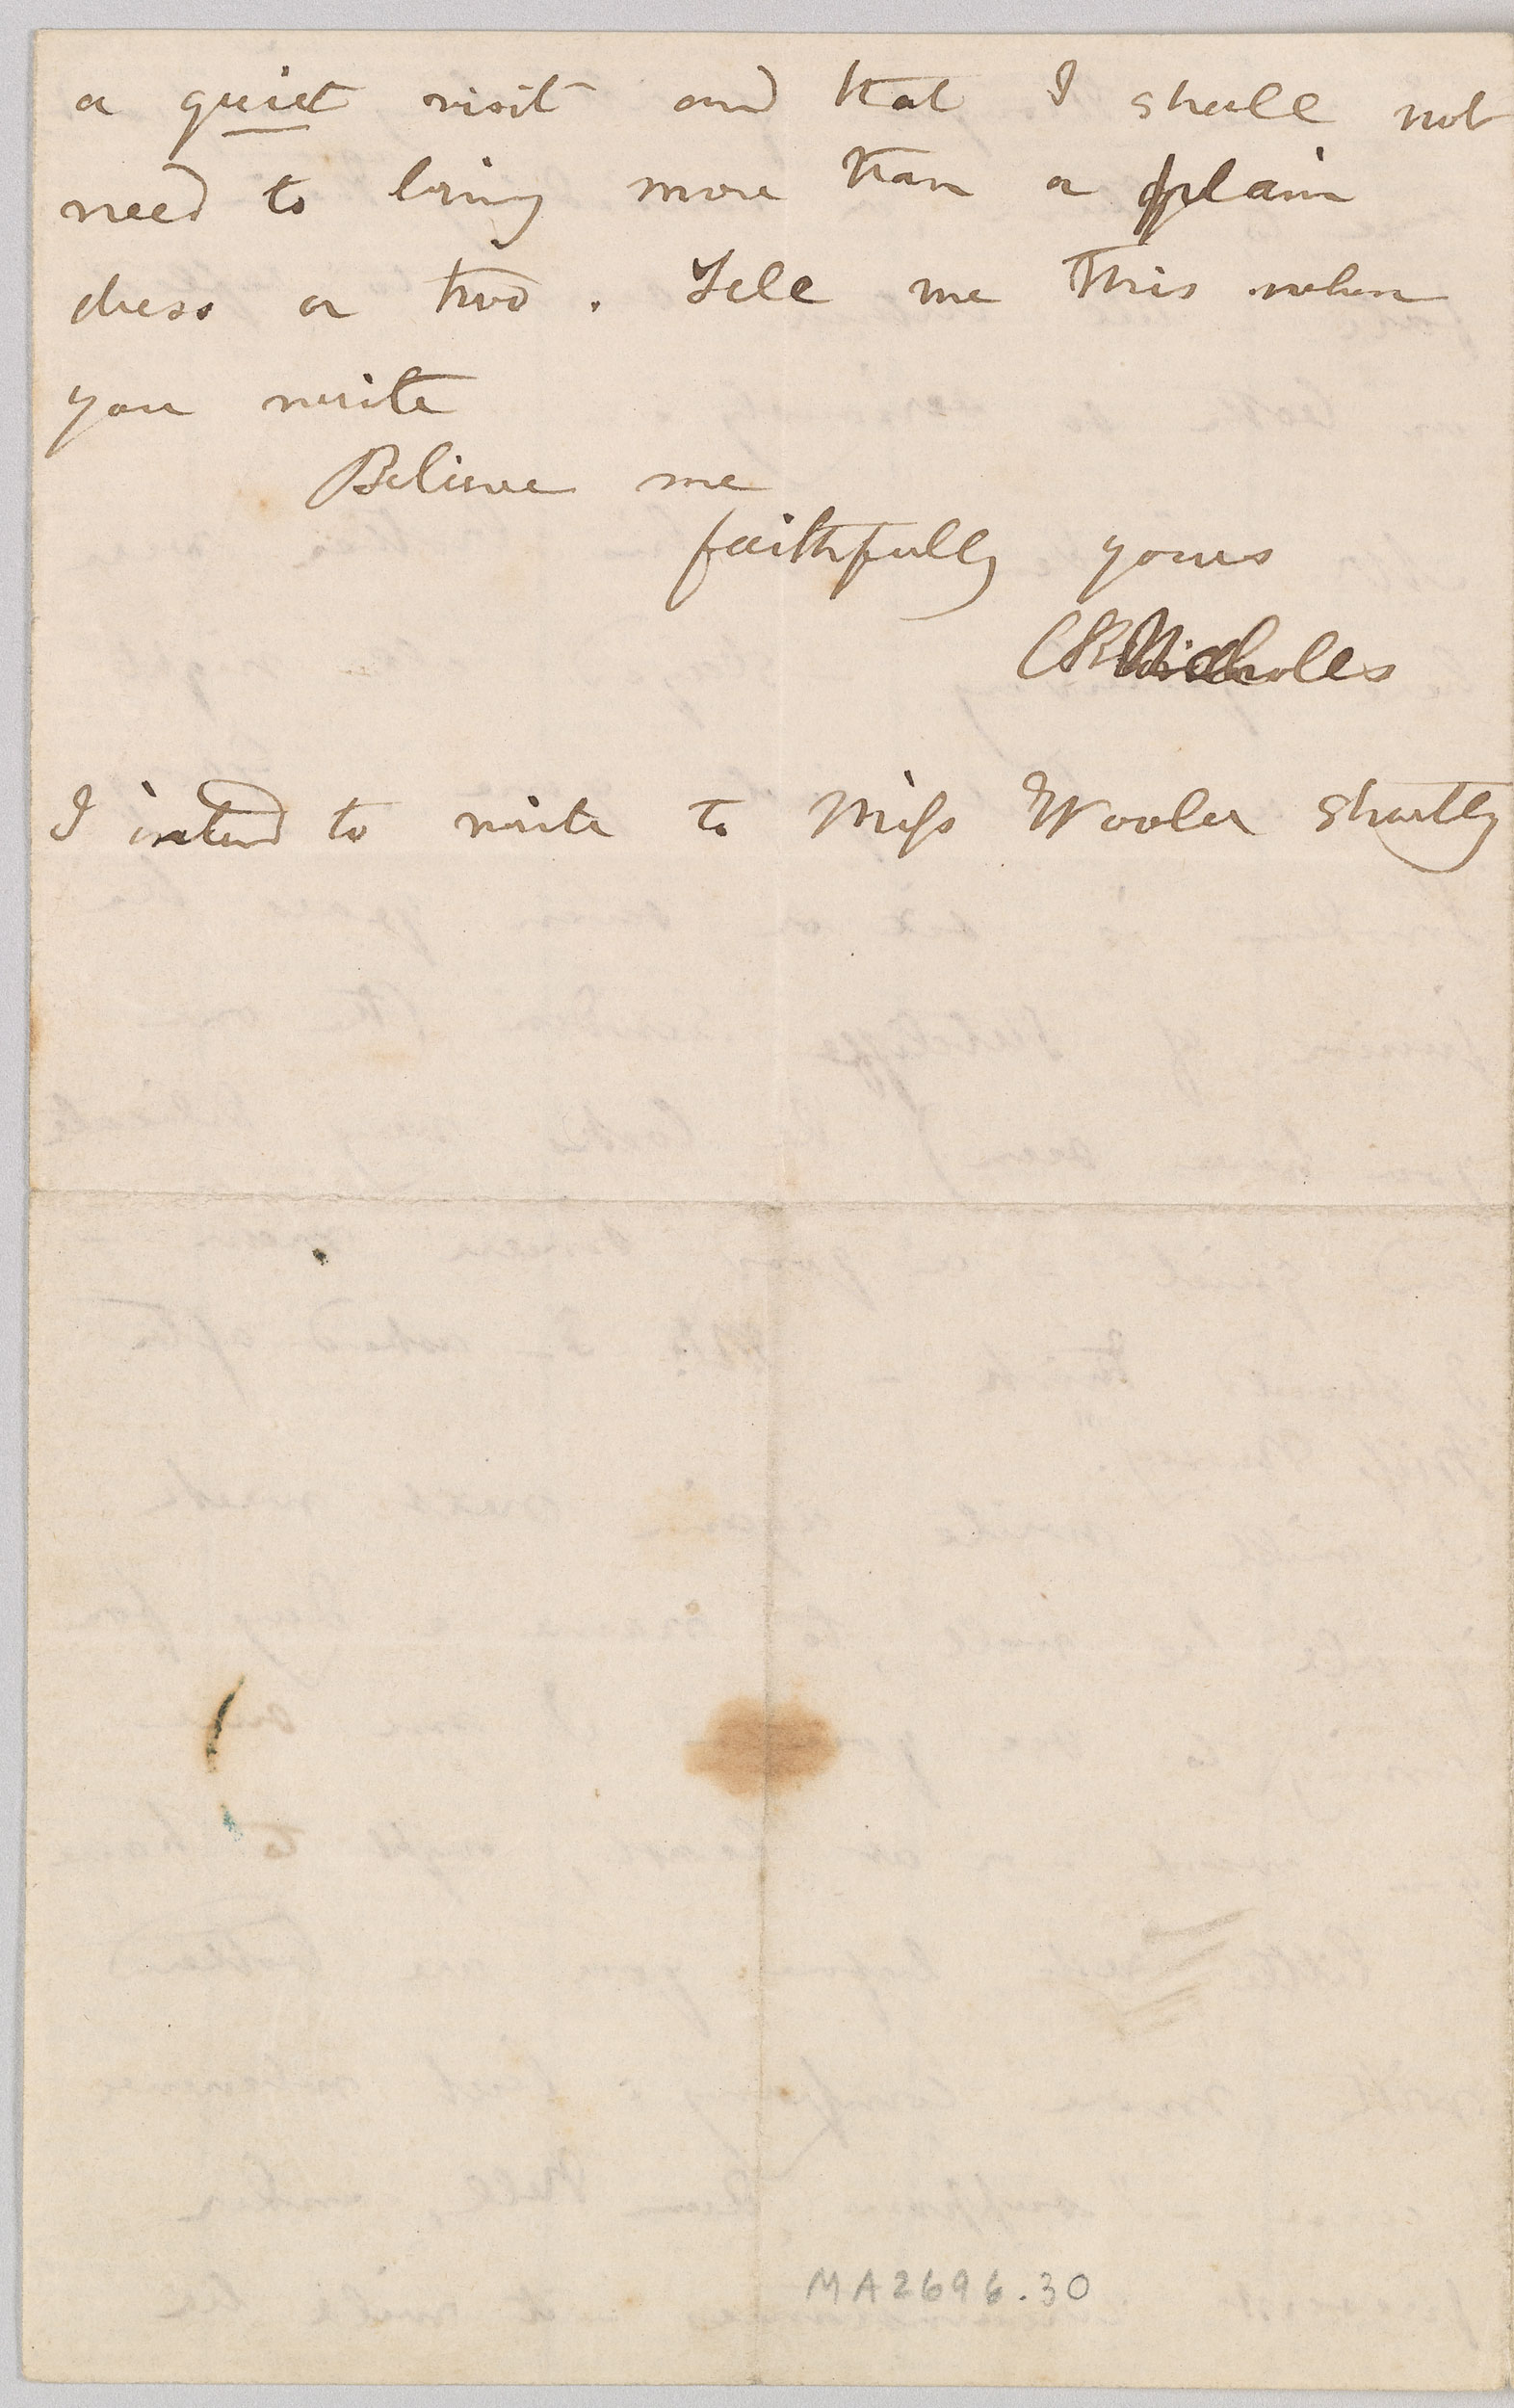 a quiet visit and that I shall not
need to bring more than a plain
dress or two. Tell me this when
you write
Believe me
faithfully yours
CB Nicholls
I intend to write to Miss Wooler shortly
MA2696.30